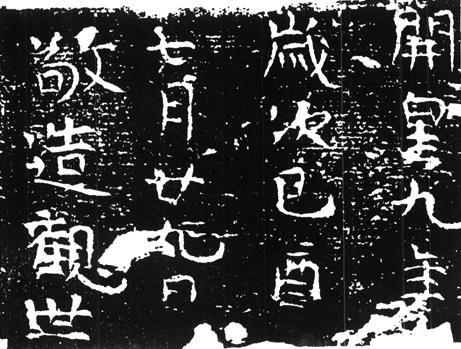 開皇九年
歲次己酉
七月廿九日
敬造觀世